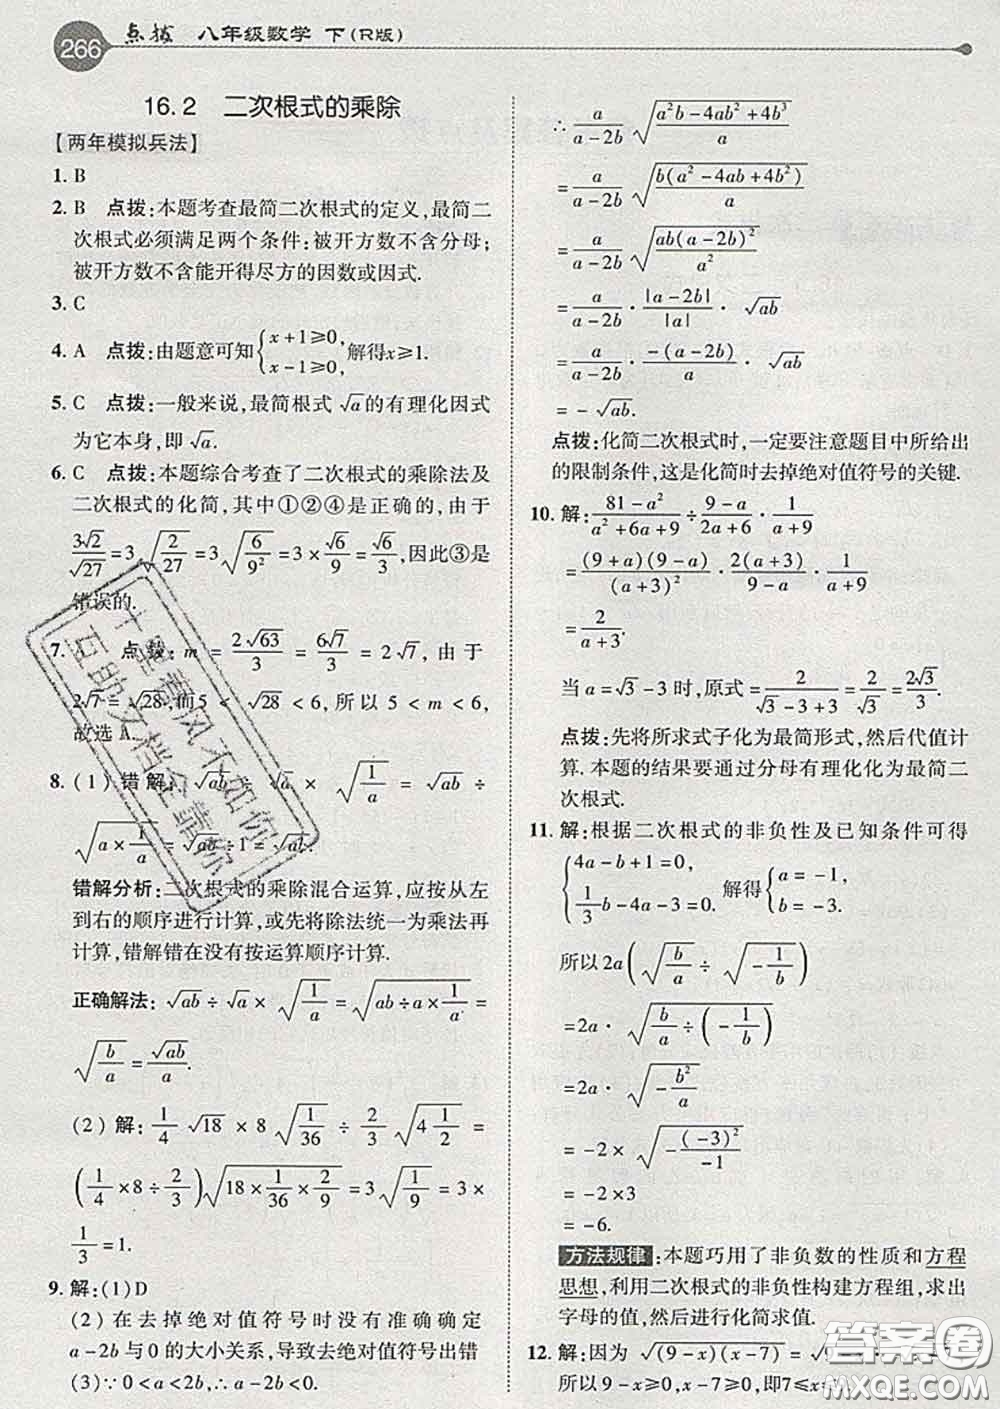 266 点拨 八年级数学 下(R版)
16.2 二次根式的乘除
【两年模拟兵法】
1. B
2. B 点拨:本题考查最简二次根式的定义,最简二
次根式必须满足两个条件:被开方数不含分母;
被开方数不含能开得尽方的因数或因式.
3. C
4. A 点拨:由题意可知{x+1≥0, x-1≥0, 解得x≥1.
5. C 点拨:一般来说,最简根式√a的有理化因式
为它本身,即√a.
6. C 点拨:本题综合考查了二次根式的乘除法及
二次根式的化简,其中①②④是正确的,由于
3√2/√27=3√(2/27)=3√(6/9²)=3×√6/3=√6/3,因此③是
错误的.
7. 点拨:m=2√63/3=6√7/3=2√7,由于
2√7=√28,而5<√28<6,所以5<m<6,
故选A.
8. (1)错解:√ab÷√a×√(1/a)=√ab÷
√(a×1/a)=√ab÷1=√ab.
错解分析:二次根式的乘除混合运算,应按从左
到右的顺序进行计算,或先将除法统一为乘法再
计算,错解错在没有按运算顺序计算.
正确解法:√ab÷√a×√(1/a)=√(ab÷a×1/a)=
√(b/a)=√ab/a.
(2)解:1/4√18×8√(1/36)÷2/3√(4 1/2)=
(1/4×8÷2/3)√(18×1/36×2/9)=3×
1/3=1.
9. 解:(1)D
(2)在去掉绝对值符号时没有准确确定
a-2b与0的大小关系,导致去绝对值符号出错
(3)∵0<a<2b,∴a-2b<0.
∴a/(a-2b)√((a²b-4ab²+4b³)/a)
=a/(a-2b)√(b(a²-4ab+4b²)/a)
=a/(a-2b)√(ab(a-2b)²/a²)
=a/(a-2b)·|a-2b|/|a|·√ab
=a/(a-2b)·-(a-2b)/a·√ab
=-√ab.
点拨:化简二次根式时,一定要注意题目中所给出
的限制条件,这是化简时去掉绝对值符号的关键.
10. 解:(81-a²)/(a²+6a+9)÷(9-a)/(2a+6)·1/(a+9)
=(9+a)(9-a)/(a+3)²·2(a+3)/(9-a)·1/(a+9)
=2/(a+3).
当a=√3-3时,原式=2/(√3-3+3)=2/√3=2√3/3.
点拨:先将所求式子化为最简形式,然后代值计
算.本题的结果要通过分母有理化化为最简二
次根式.
11. 解:根据二次根式的非负性及已知条件可得
{4a-b+1=0, 1/3b-4a-3=0. 解得{a=-1, b=-3.
所以2a(√(b/a)÷√(-1/b))
=2a·√(b/a÷(-1/b))
=2a·√(-b²/a)
=-2×√(-(-3)²/-1)
=-2×3
=-6.
方法规律:本题巧用了非负数的性质和方程
思想,利用二次根式的非负性构建方程组,求出
字母的值,然后进行化简求值.
12. 解:因为√((9-x)(x-7))=√(9-
所以9-x≥0,x-7≥0,即7≤x
十里春风不如你
互助文档全靠你
答案圈
MXQE.COM